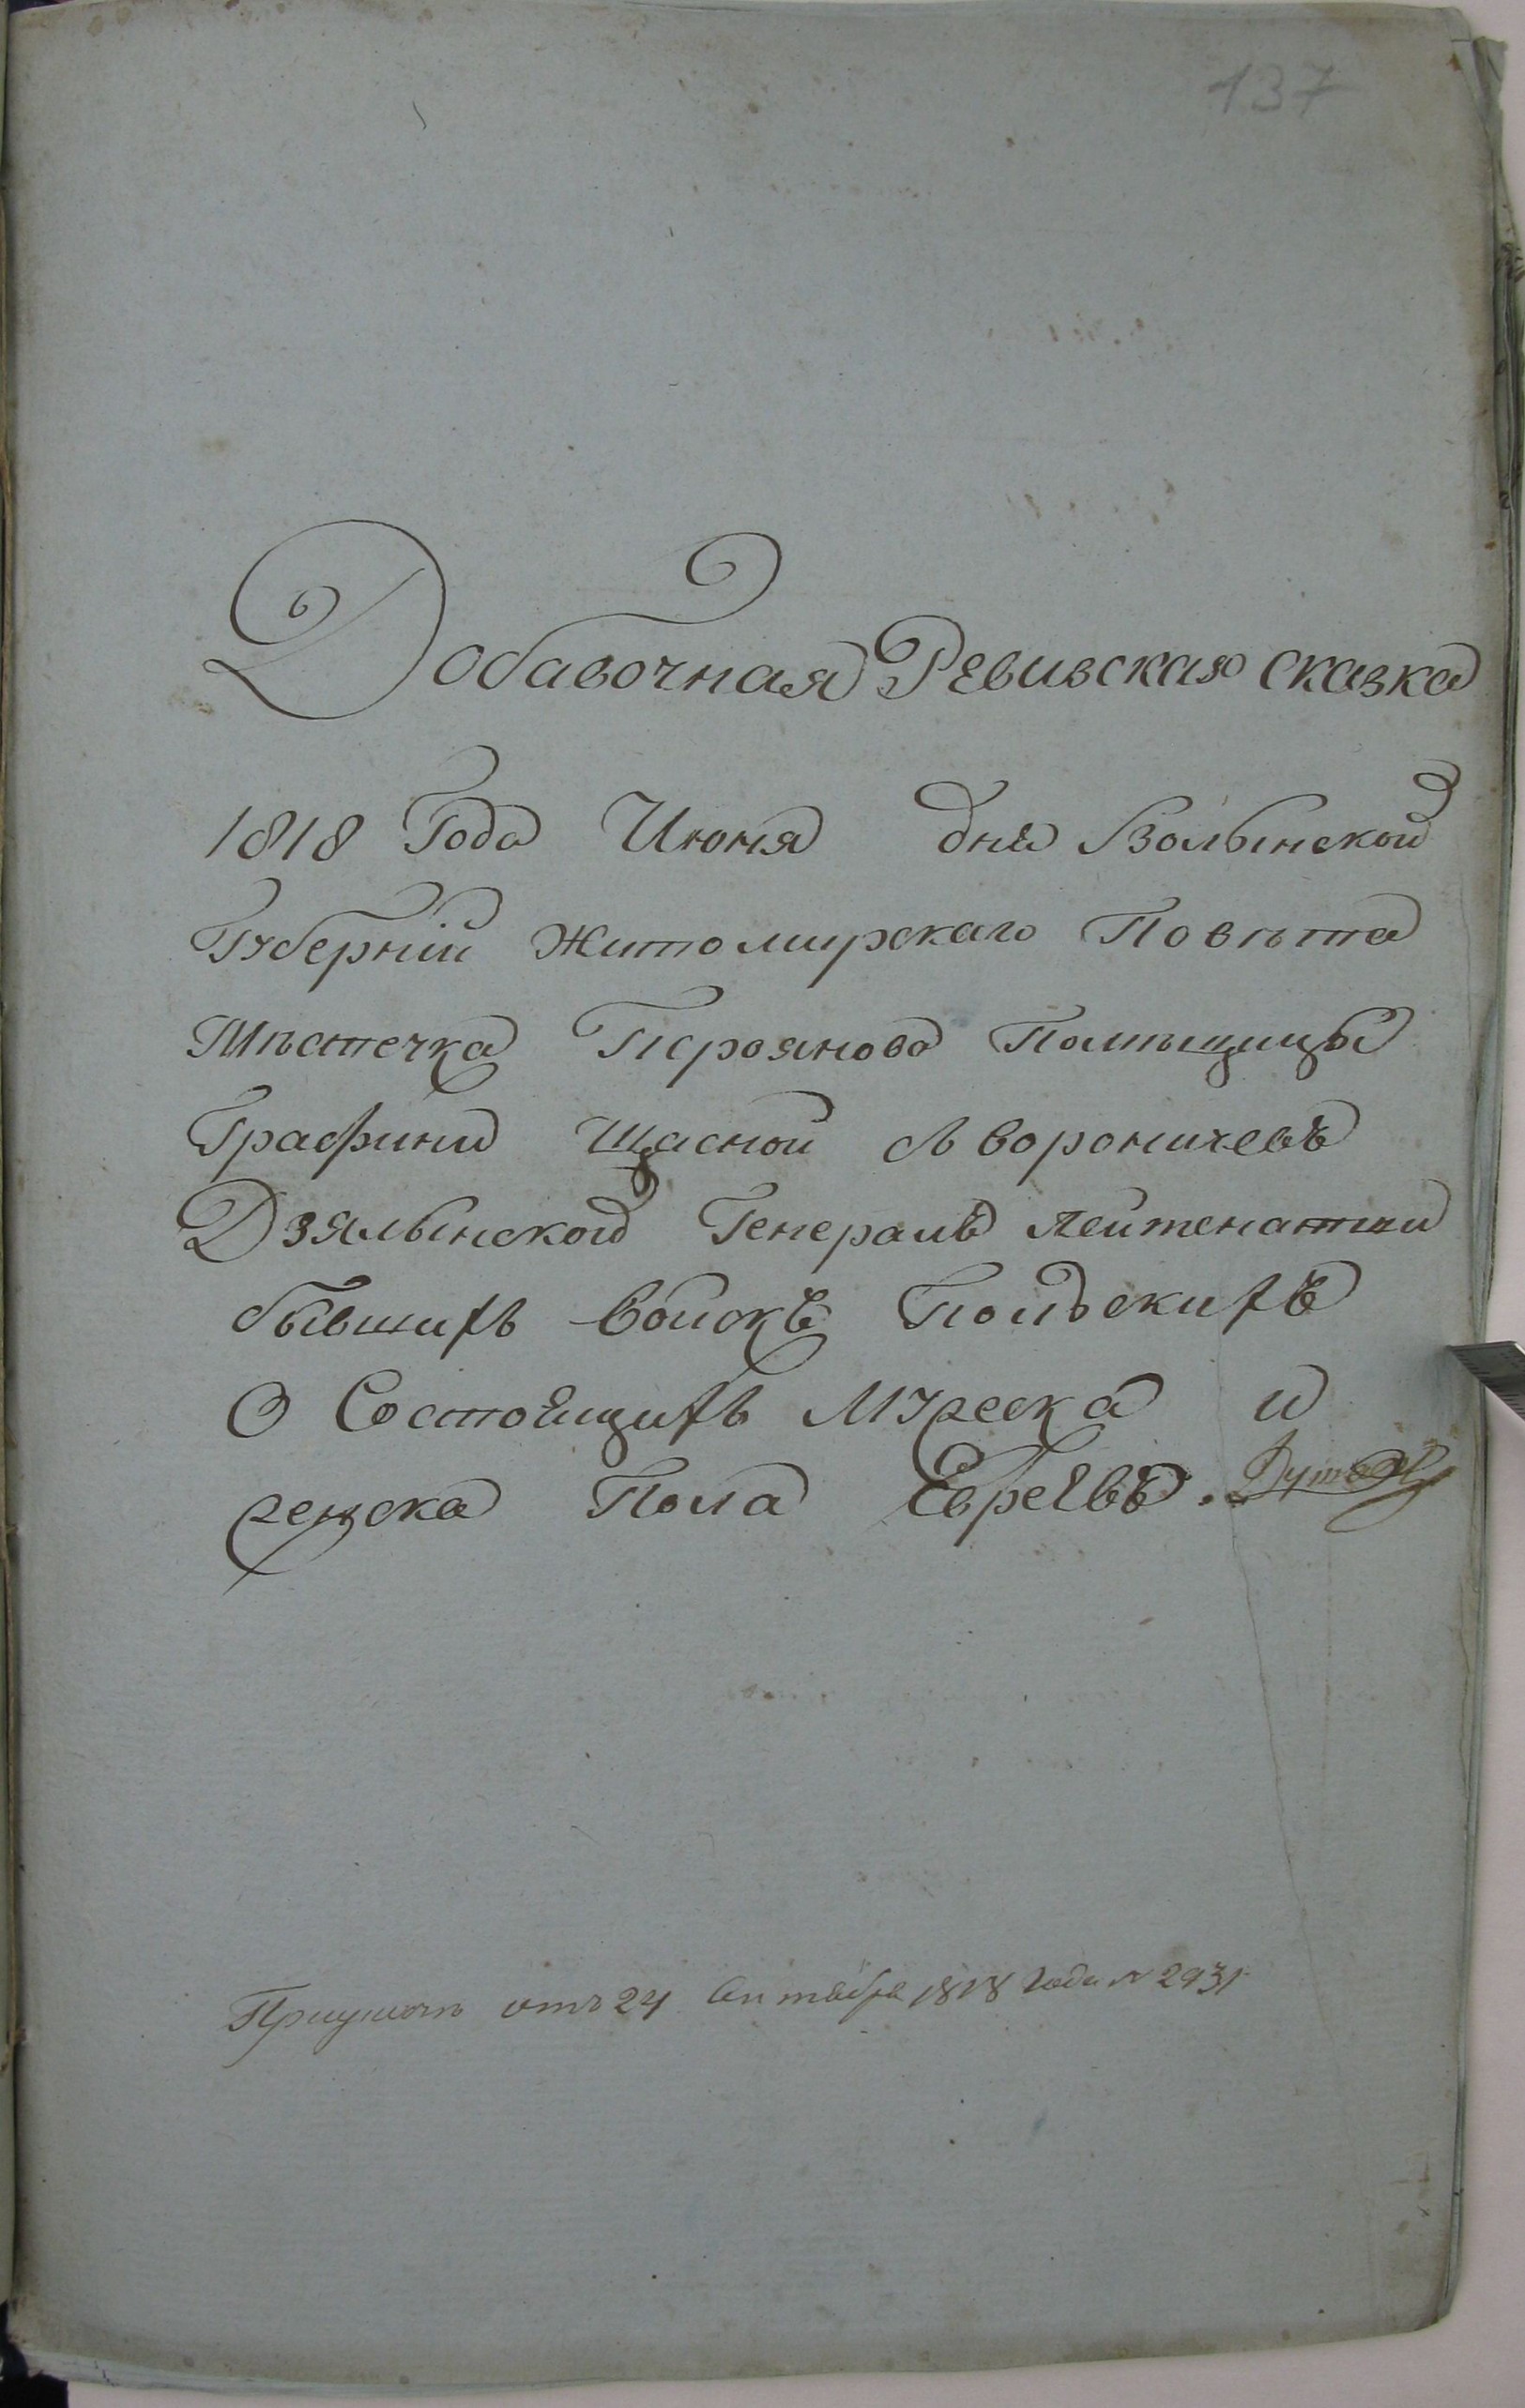 137
Добавочная Ревизская сказка
1818 Года Июня дня Волынской
Губерніи Житомирскаго Повѣта
Мѣстечка Трояновa Помѣщицы
Графини Щасной зъ Вороничевъ
Дзялынской Генералъ Лейтенантши
бывшихъ войскъ Польскихъ
О Состоящихъ Мужеска и
женска Пола Евреевъ.
отъ 24 октября 1818 года № 2931